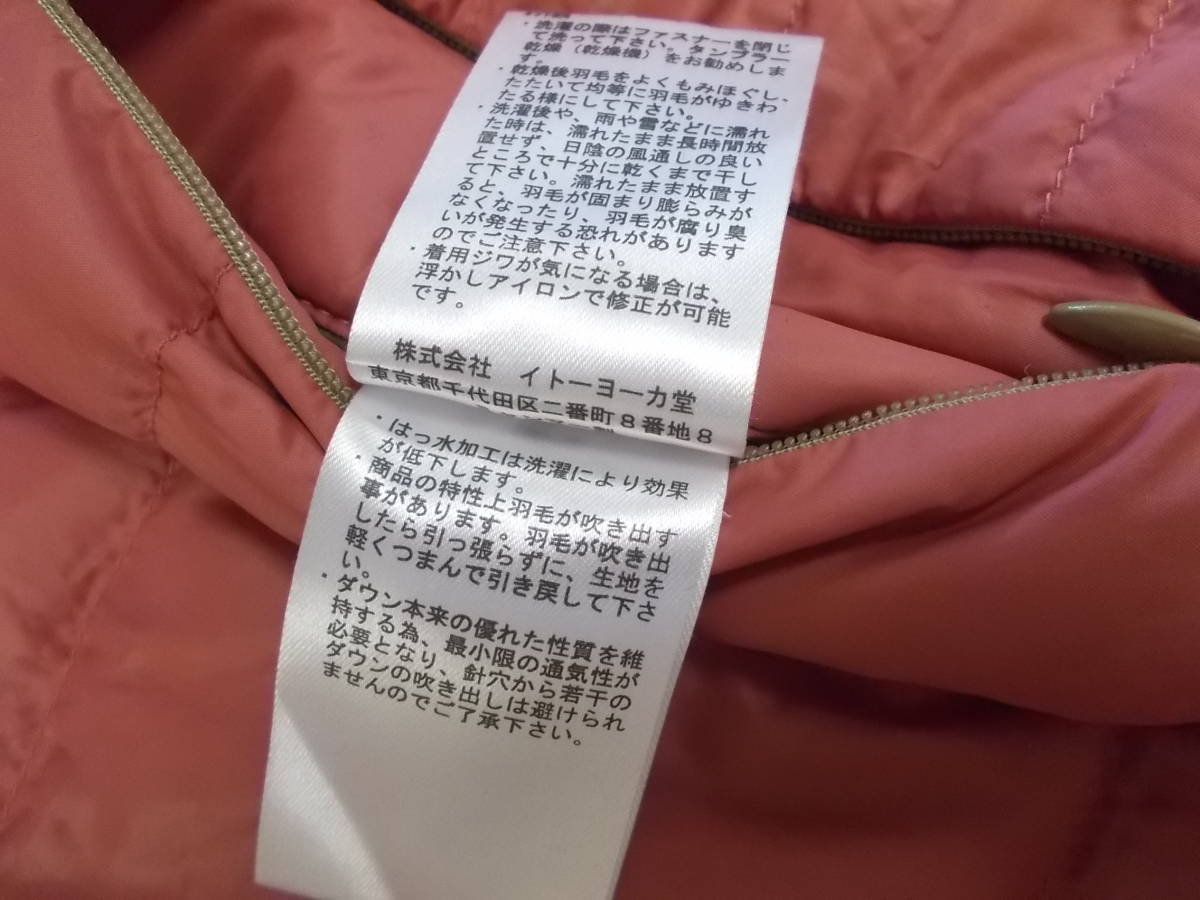 ・洗濯の際はファスナーを閉じ
て洗って下さい。タンブラー
乾燥（乾燥機）をお勧めしま
す。
・乾燥後羽毛をよくもみほぐし、
たたいて均等に羽毛がゆきわ
たる様にして下さい。
・洗濯後や、雨や雪などに濡れ
た時は、濡れたまま長時間放
置せず、日陰の風通しの良い
ところで十分に乾くまで干し
て下さい。濡れたまま放置す
ると、羽毛が固まり膨らみが
なくなったり、羽毛が腐り臭
いが発生する恐れがあります
のでご注意下さい。
・着用ジワが気になる場合は、
浮かしアイロンで修正が可能
です。
株式会社 イトーヨーカ堂
東京都千代田区二番町８番地８
・はっ水加工は洗濯により効果
が低下します。
・商品の特性上羽毛が吹き出す
事があります。羽毛が吹き出
したら引っ張らずに、生地を
軽くつまんで引き戻して下さ
い。
・ダウン本来の優れた性質を維
持する為、最小限の通気性が
必要となり、針穴から若干の
ダウンの吹き出しは避けられ
ませんのでご了承下さい。